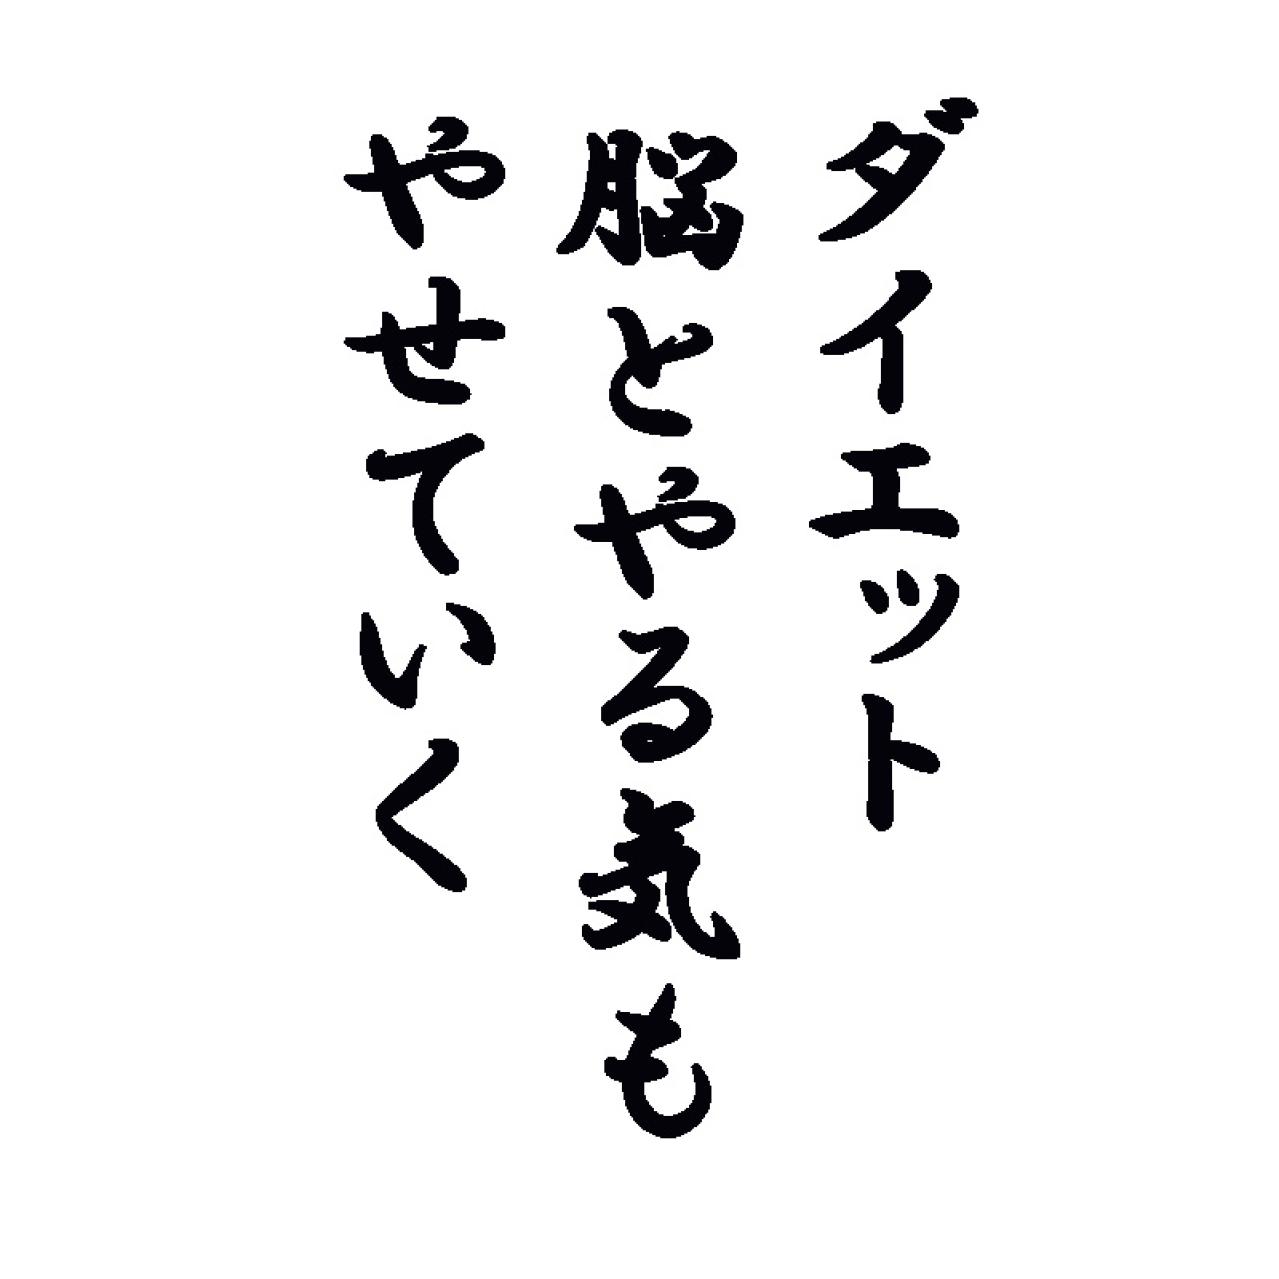 ダイエット
脳とやる気も
やせていく